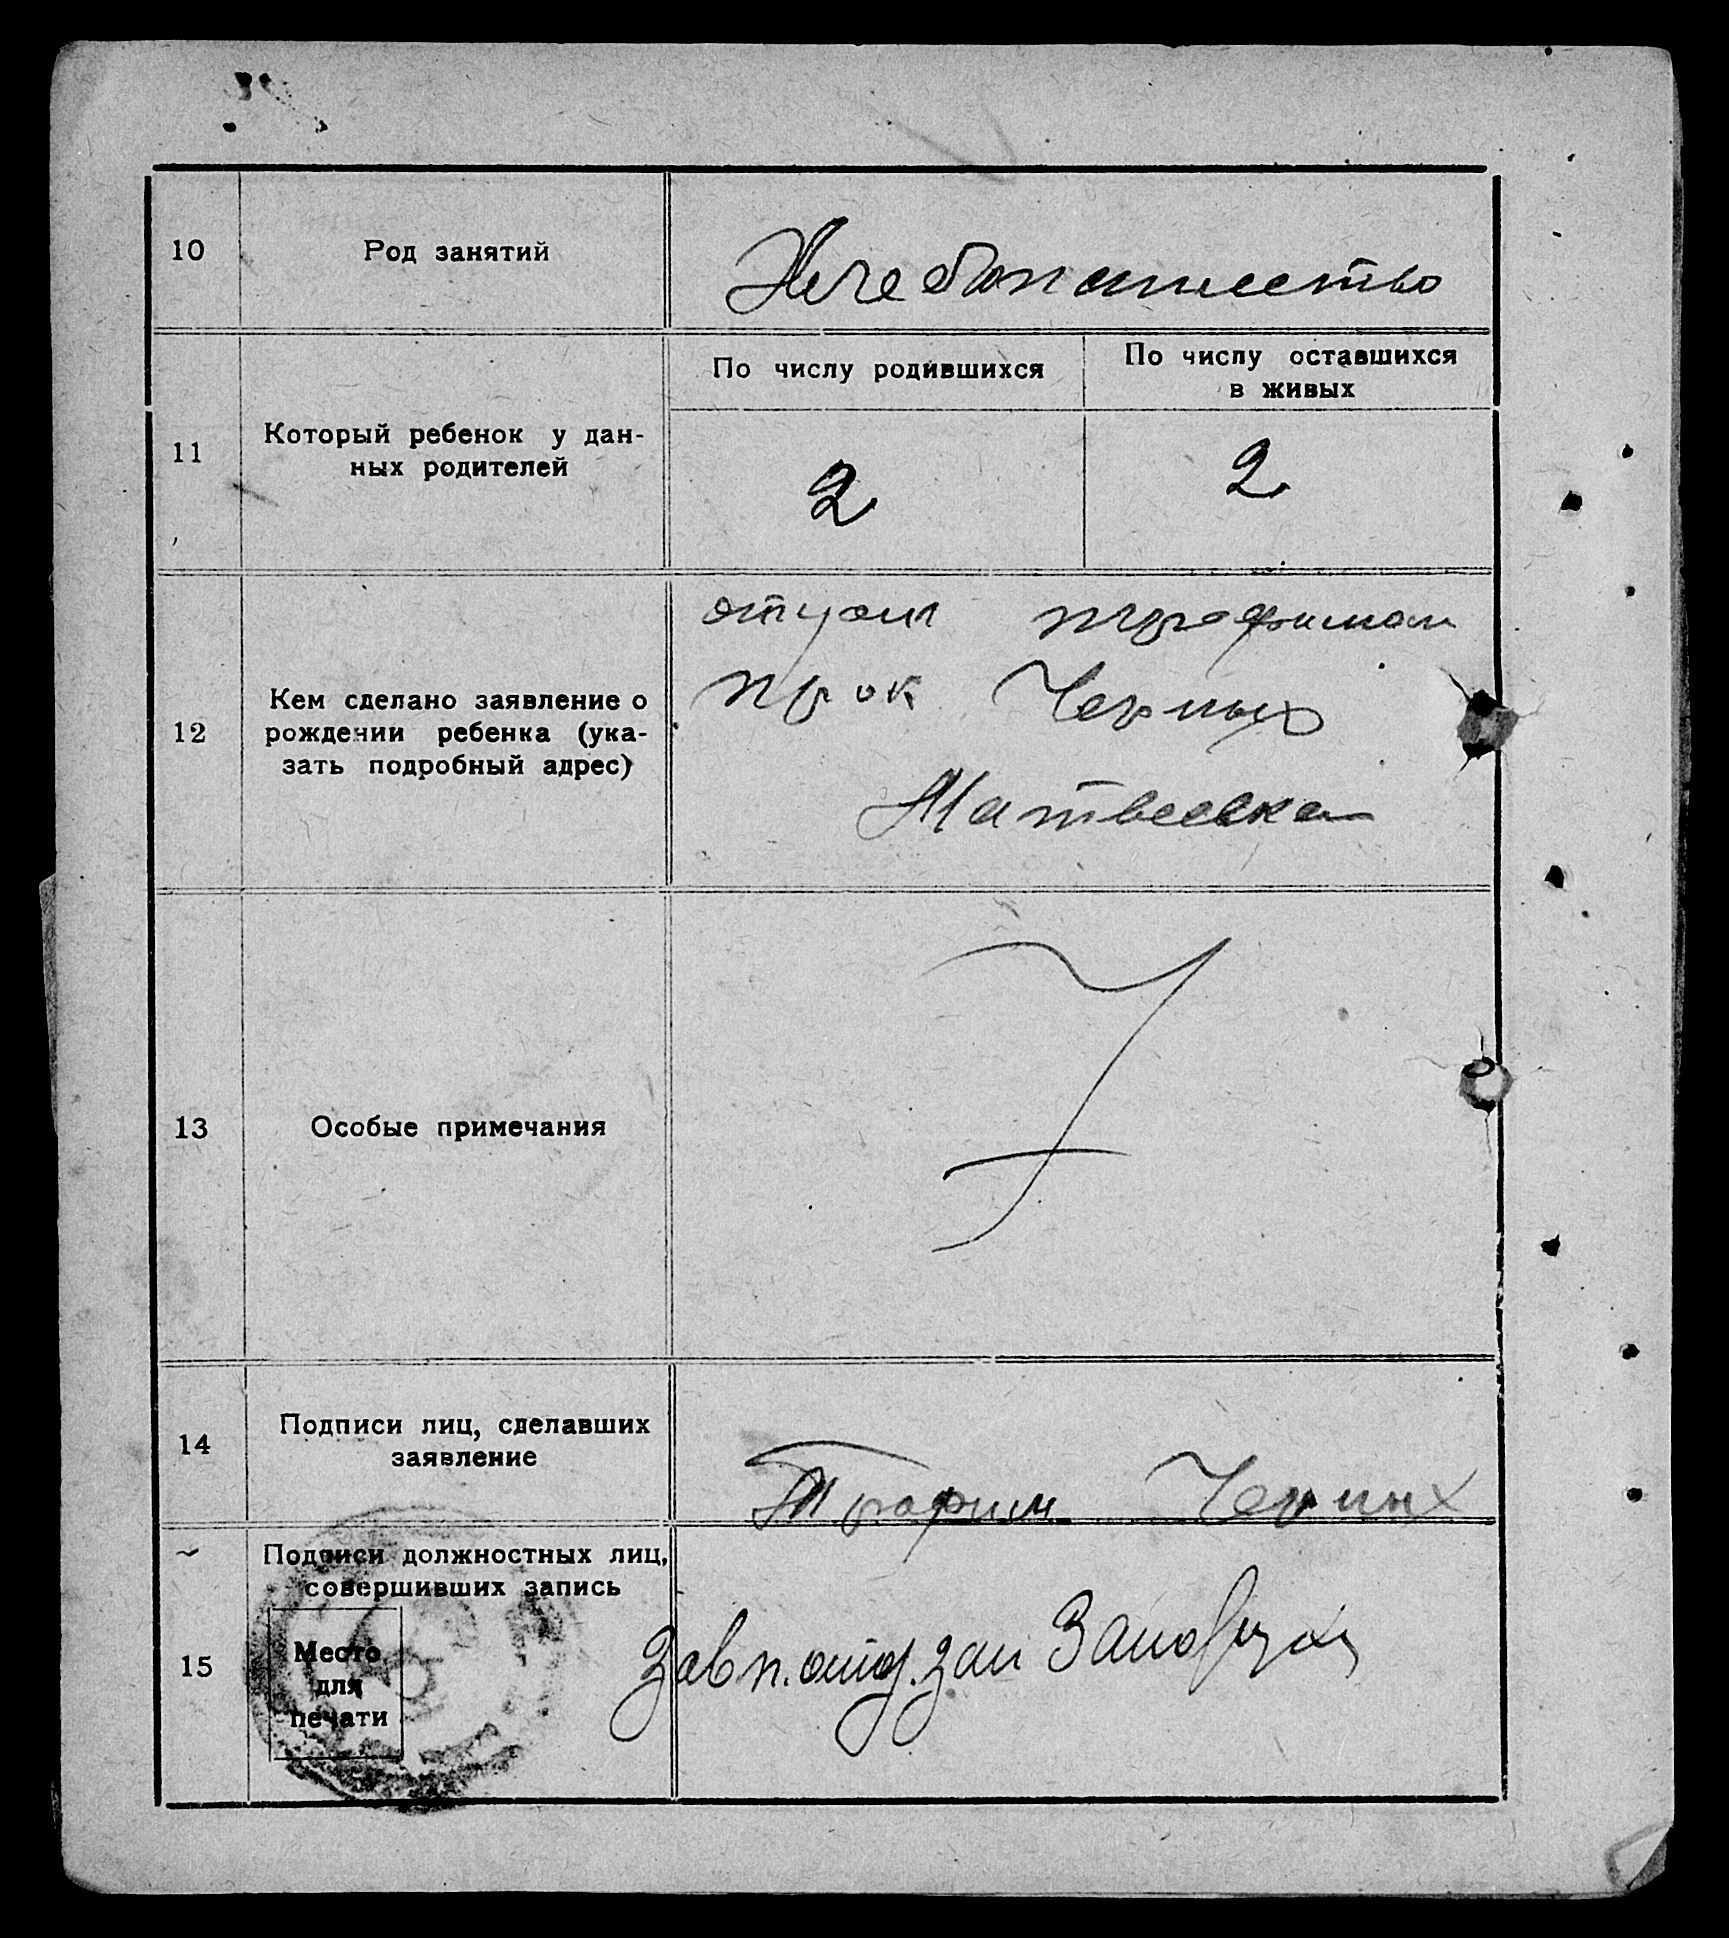 10
Род занятий
Хлебопашество
11
Который ребенок у дан-
ных родителей
По числу родившихся
По числу оставшихся
в живых
2
2
12
Кем сделано заявление о
рождении ребенка (ука-
зать подробный адрес)
отцом трофимом
прок Черных
Матвеевка
13
Особые примечания
14
Подписи лиц, сделавших
заявление
Трофим Черных
15
Подписи должностных лиц,
совершивших запись
Место
для
печати
Завп.